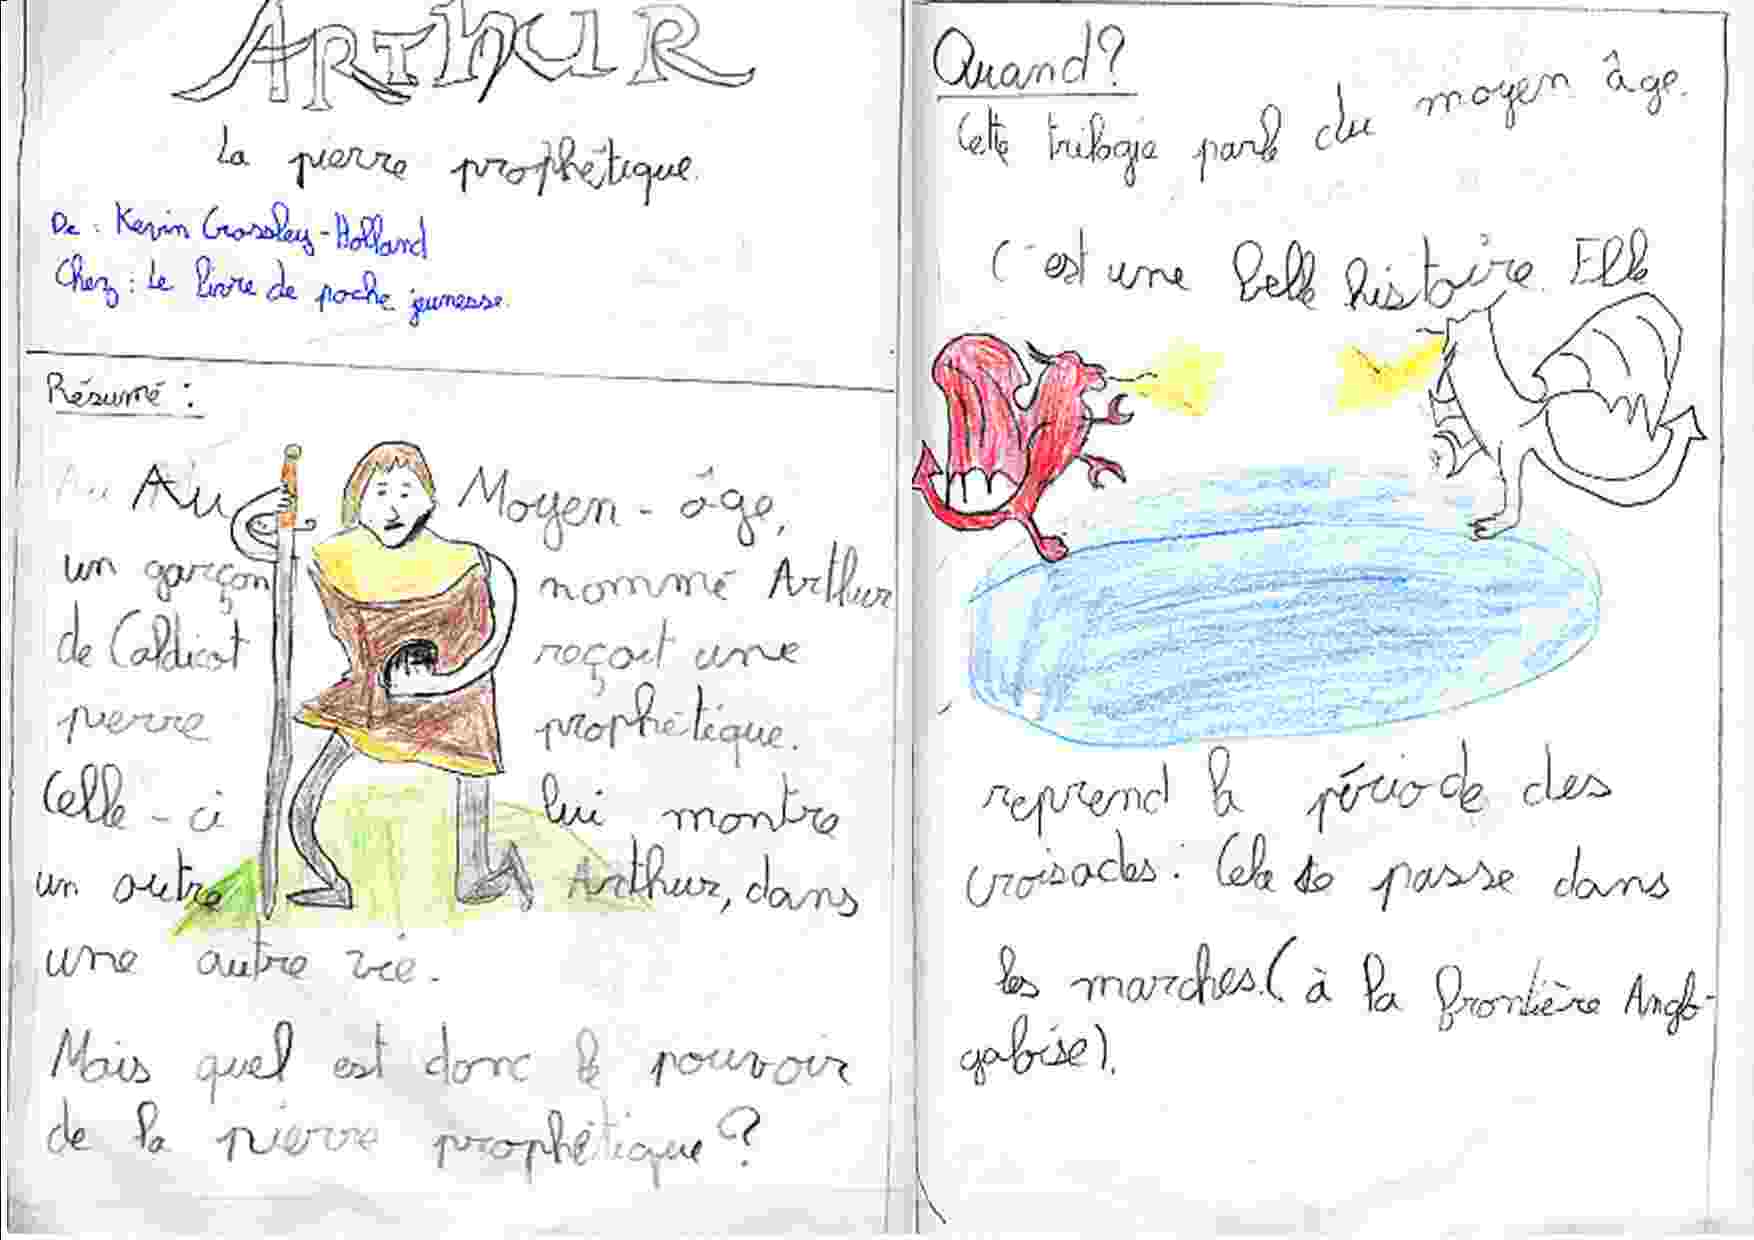 ARTHUR
La pierre prophétique.
De : Kevin Crossley-Holland
Chez : Le livre de poche jeunesse.
Résumé :
Au Au Moyen-âge,
un garçon nommé Arthur
de Caldicot reçoit une
pierre prophétique.
Celle-ci lui montre
un autre Arthur, dans
une autre vie.
Mais quel est donc le pouvoir
de la pierre prophétique ?
Quand ?
Cette trilogie parle du moyen âge.
C'est une belle histoire. Elle
reprend la période des
croisades. Cela se passe dans
les marches. (à la frontière Anglo-
galoise).